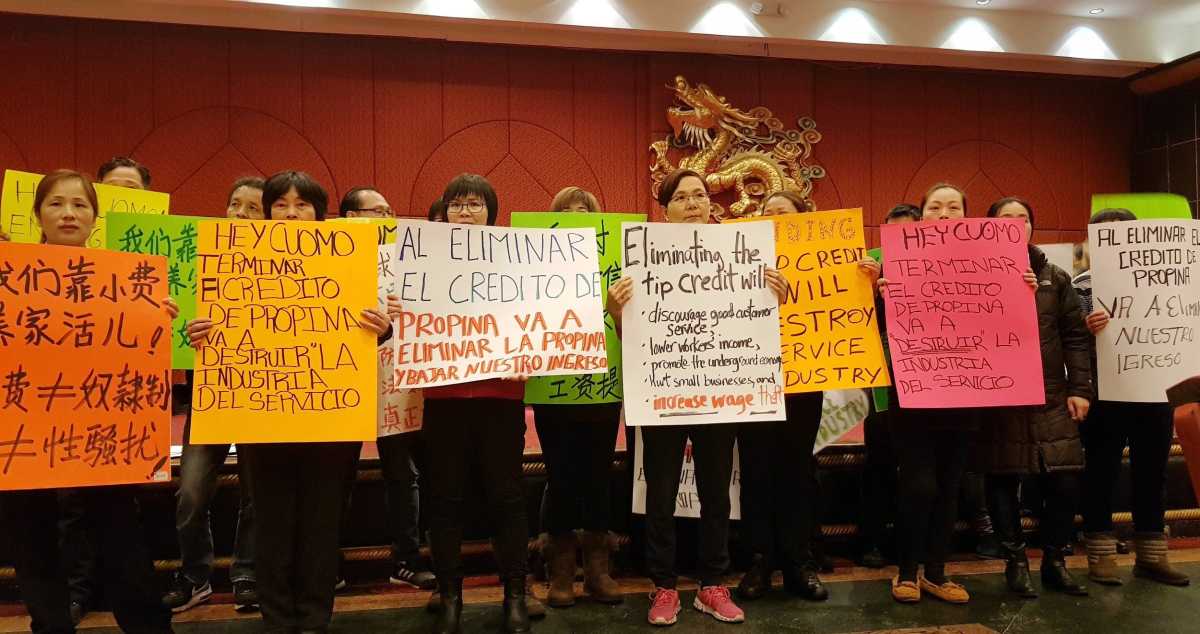 我们靠小费
养家活儿!
费≠奴隶制
≠性骚扰
我们靠
HEY CUOMO
TERMINAR
El CREDITO
DE PROPINA
VA A
DESTRUIR"LA
INDUSTRIA
DEL SERVICIO
AL ELIMINAR
EL CREDITO DE
PROPINA VA A
ELIMINAR LA PROPINA
Y BAJAR NUESTRO INGRESO
工资提
Eliminating the
tip credit will
• discourage good customer
service,
• lower workers' income,
• promote the underground economy
• Hurt small businesses, and
• increase wage theft
ENDING
CREDIT
WILL
DESTROY
SERVICE
INDUSTRY
HEY CUOMO
TERMINAR
EL CREDITO
DE PROPINA
VA A
DESTRUIR "LA
INDUSTRIA
DEL SERVICIO
AL ELIMINAR EL
CREDITO DE
PROPINA
VA A ELIMIN
NUESTRO
IGRESO